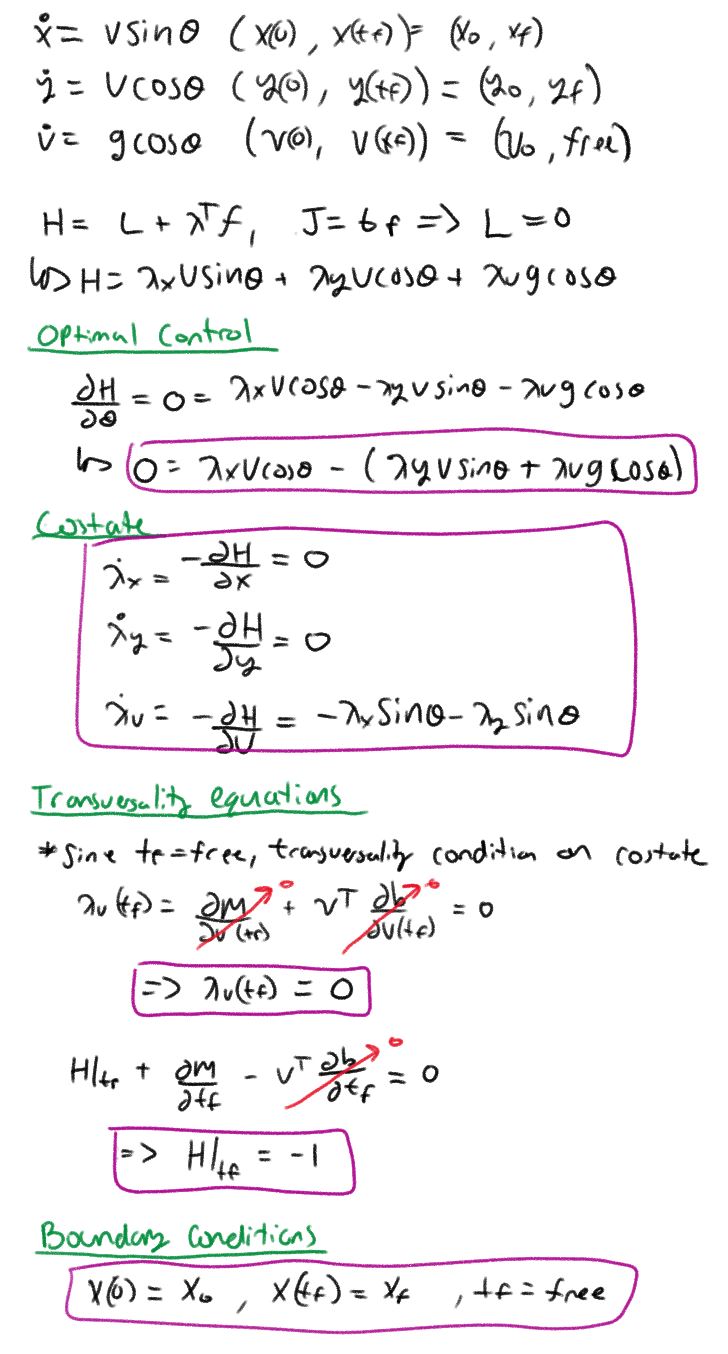 ẋ = vsinθ (x(0), x(tf)) = (x₀, xf)
ẏ = vcosθ (y(0), y(tf)) = (y₀, yf)
v̇ = gcosθ (v(0), v(tf)) = (v₀, free)
H = L + λᵀf, J = tf => L = 0
↳> H = λxvsinθ + λyvcosθ + λvgcosθ
Optimal Control
∂H/∂θ = 0 = λxvcosθ - λyvsinθ - λvgcosθ
↳ 0 = λxvcosθ - (λyvsinθ + λvgcosθ)
Costate
λ̇x = -∂H/∂x = 0
λ̇y = -∂H/∂y = 0
λ̇v = -∂H/∂v = -λxsinθ - λysinθ
Transversality equations
*Sine tf = free, transversality condition on costate
λv(tf) = ∂M/∂v(tf) 0 + νᵀ ∂b/∂v(tf) 0 = 0
=> λv(tf) = 0
H|tf + ∂M/∂tf - νᵀ ∂b/∂tf 0 = 0
=> H|tf = -1
Boundary Conditions
x(0) = x₀, x(tf) = xf, tf = free